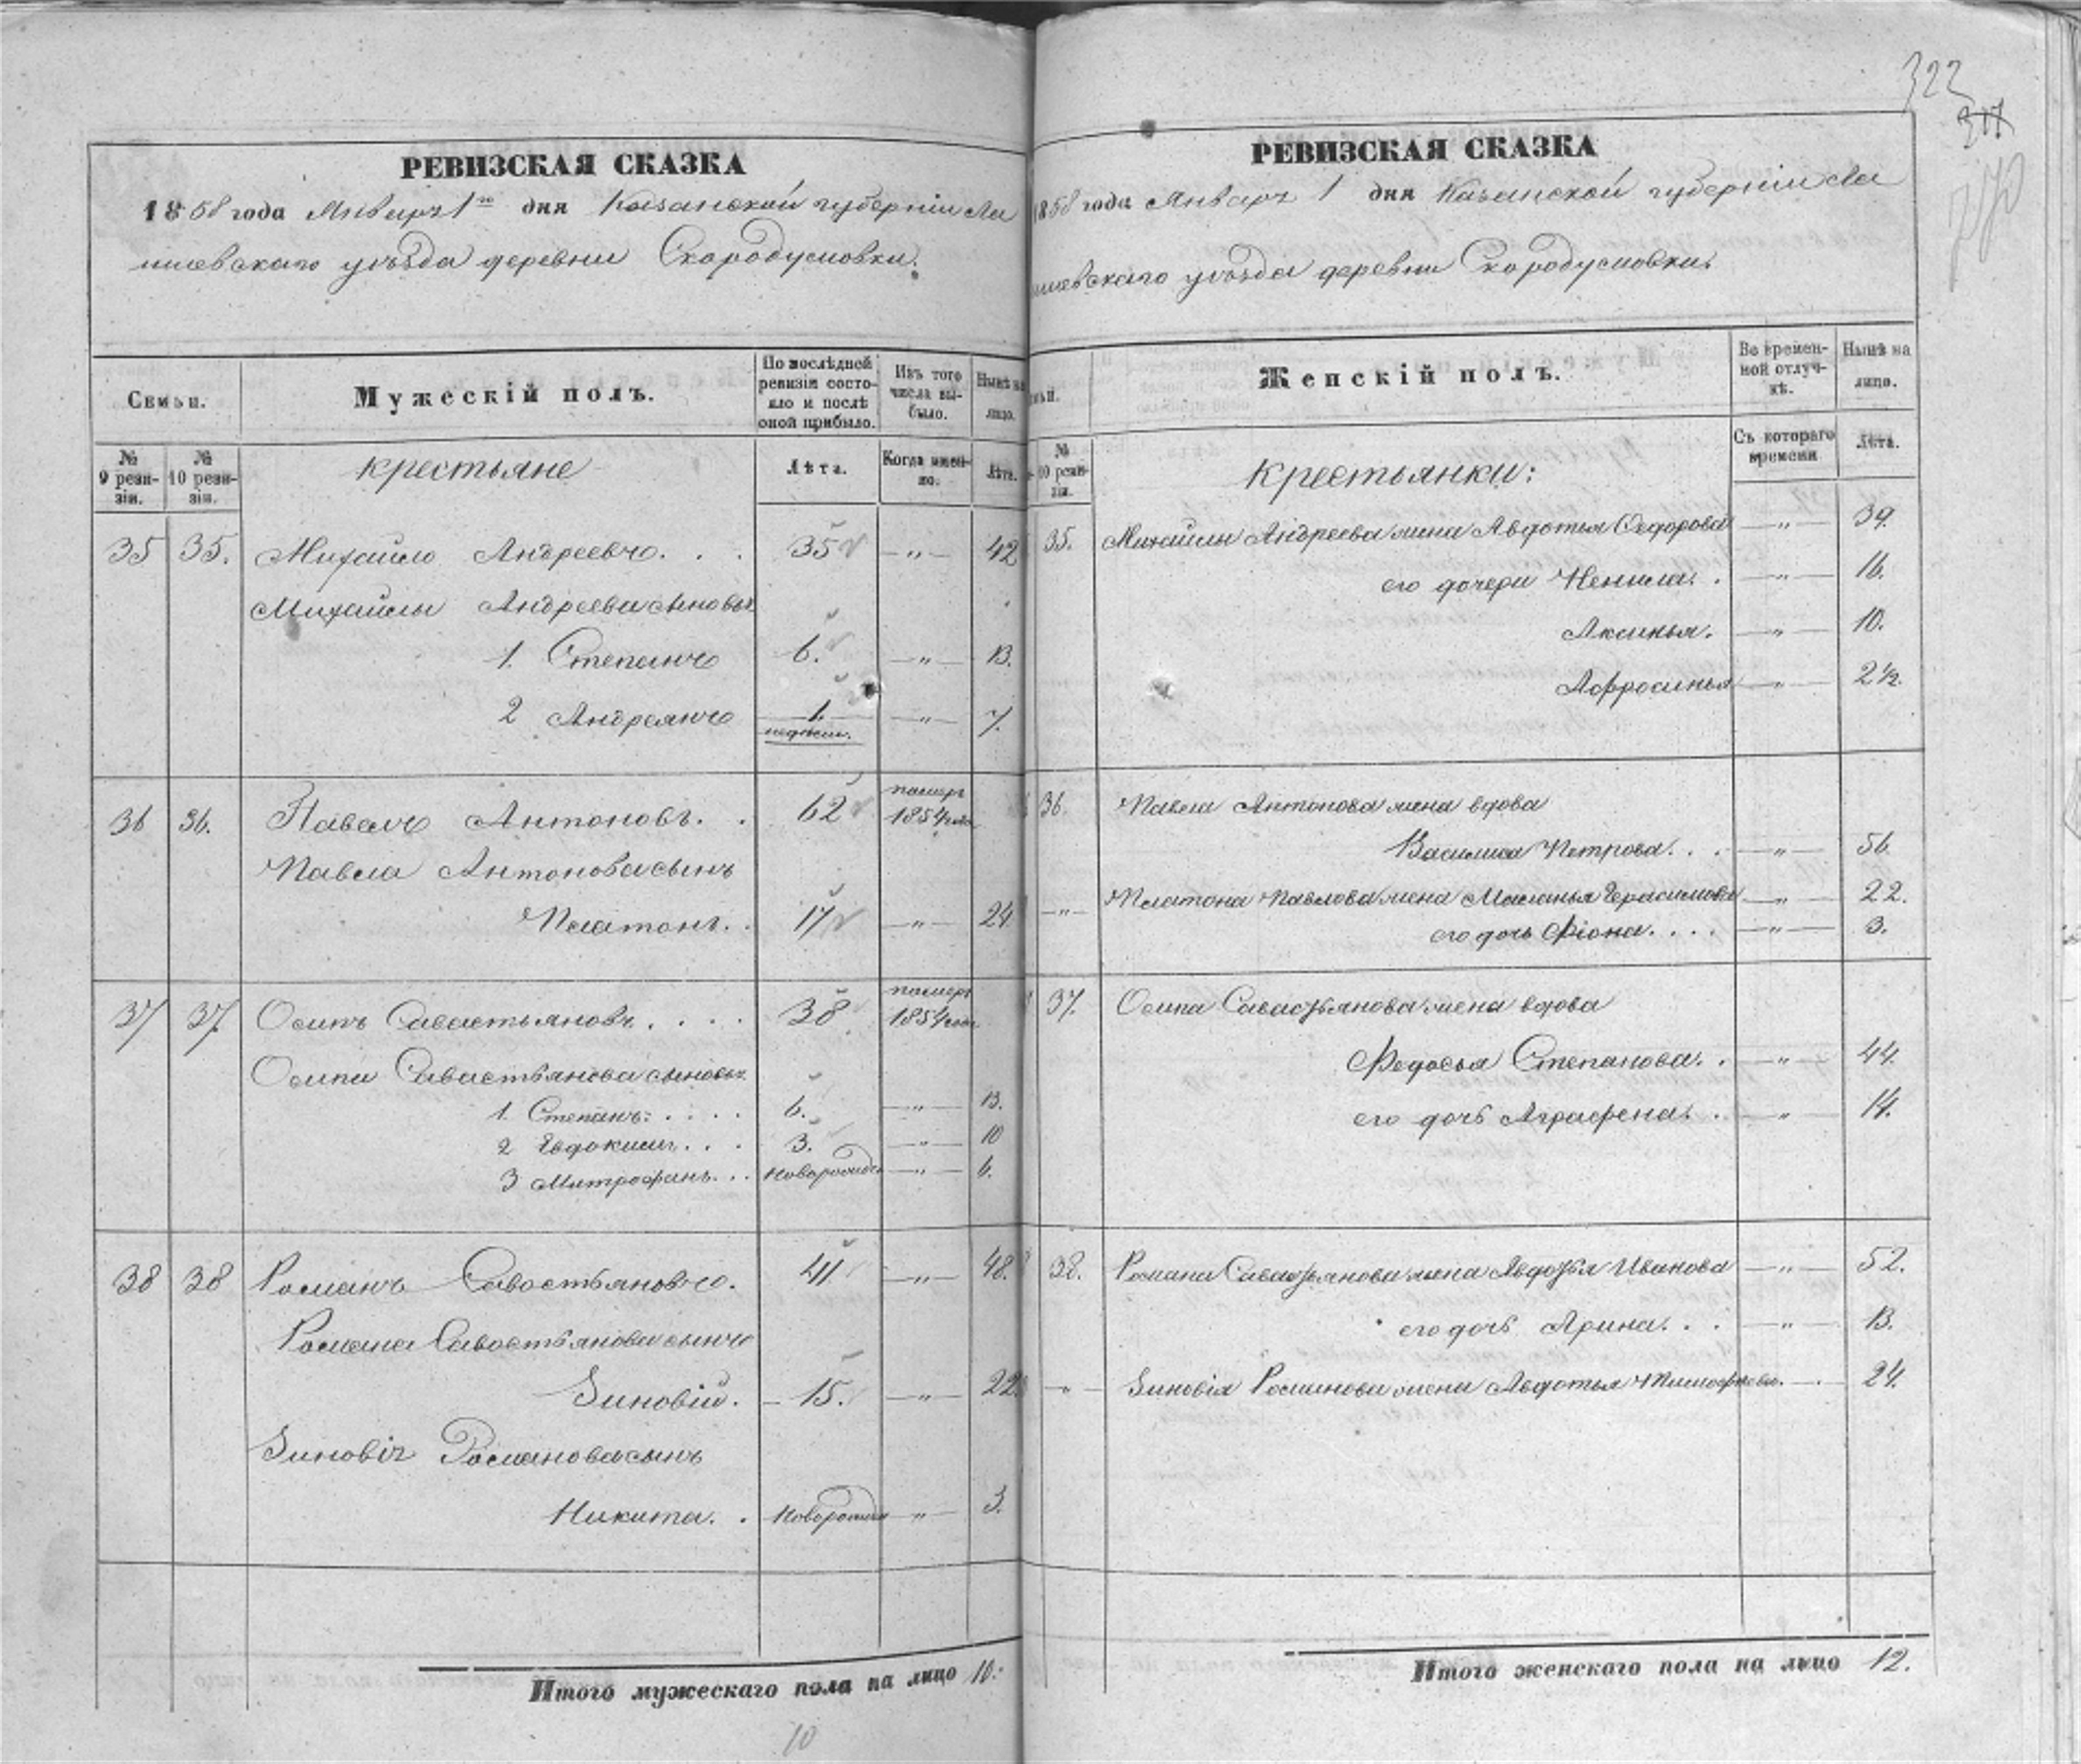 322
317
РЕВИЗСКАЯ СКАЗКА
1858 года Января 1го дня Казанской губерніи Ла
ишевскаго уѣзда деревни Скородумовки.
Семьи.
Мужескій полъ.
По послѣдней ревизіи состояло и послѣ оной прибыло.
Изъ того числа выбыло.
Нынѣ на лицо.
№ 9 ревизіи.
№ 10 ревизіи.
крестьяне
Лѣта.
Когда именно.
Лѣта.
35 35. Михайло Андреевъ. . . 35 —„— 42
Михайлы Андреева сыновья
1. Степанъ 6. —„— 13.
2 Андреянъ 1. недѣли. —„— 7.
36 36. Павелъ Антоновъ. . 62 померъ 1854 года
Павла Антонова сынъ
Платонъ. . 17 —„— 24
37 37. Осипъ Савастьяновъ. . . . 38 померъ 1854 года
Осипа Савастьянова сыновья
1. Степанъ. . . . . 6. —„— 13.
2 Евдокимъ. . . 3. —„— 10
3 Митрофанъ. . . Новорожд —„— 6.
38 38 Романъ Савостьяновъ. 41 —„— 48.
Романа Савостьянова сынъ
Зиновій. 15. —„— 22
Зиновія Романова сынъ
Никита. . Новорожд —„— 3.
Итого мужескаго пола на лицо 10.
10
РЕВИЗСКАЯ СКАЗКА
1858 года Января 1 дня Казанской губерніи Ла
ишевскаго уѣзда деревни Скородумовки.
Женскій полъ.
Во временной отлучкѣ.
Нынѣ на лицо.
№ 10 ревизіи.
крестьянки:
Съ котораго времени
Лѣта.
35. Михайлы Андреева жена Авдотья Федорова —„— 39.
его дочери Ненила. . —„— 16.
Аксинья. —„— 10.
Афросинья —„— 2 1/2.
36. Павла Антонова жена вдова
Василиса Петрова. . . —„— 56
—„— Платона Павлова жена Маланья Герасимова —„— 22.
его дочь Фіона. . . . —„— 3.
37. Осипа Савастьянова жена вдова
Федосья Степанова. . —„— 44.
его дочь Аграфена. . —„— 14.
38. Романа Савастьянова жена Авдотья Иванова —„— 52.
его дочь Арина. . . —„— 13.
—„— Зиновія Романова жена Авдотья Тимофеева. — 24.
Итого женскаго пола на лицо 12.